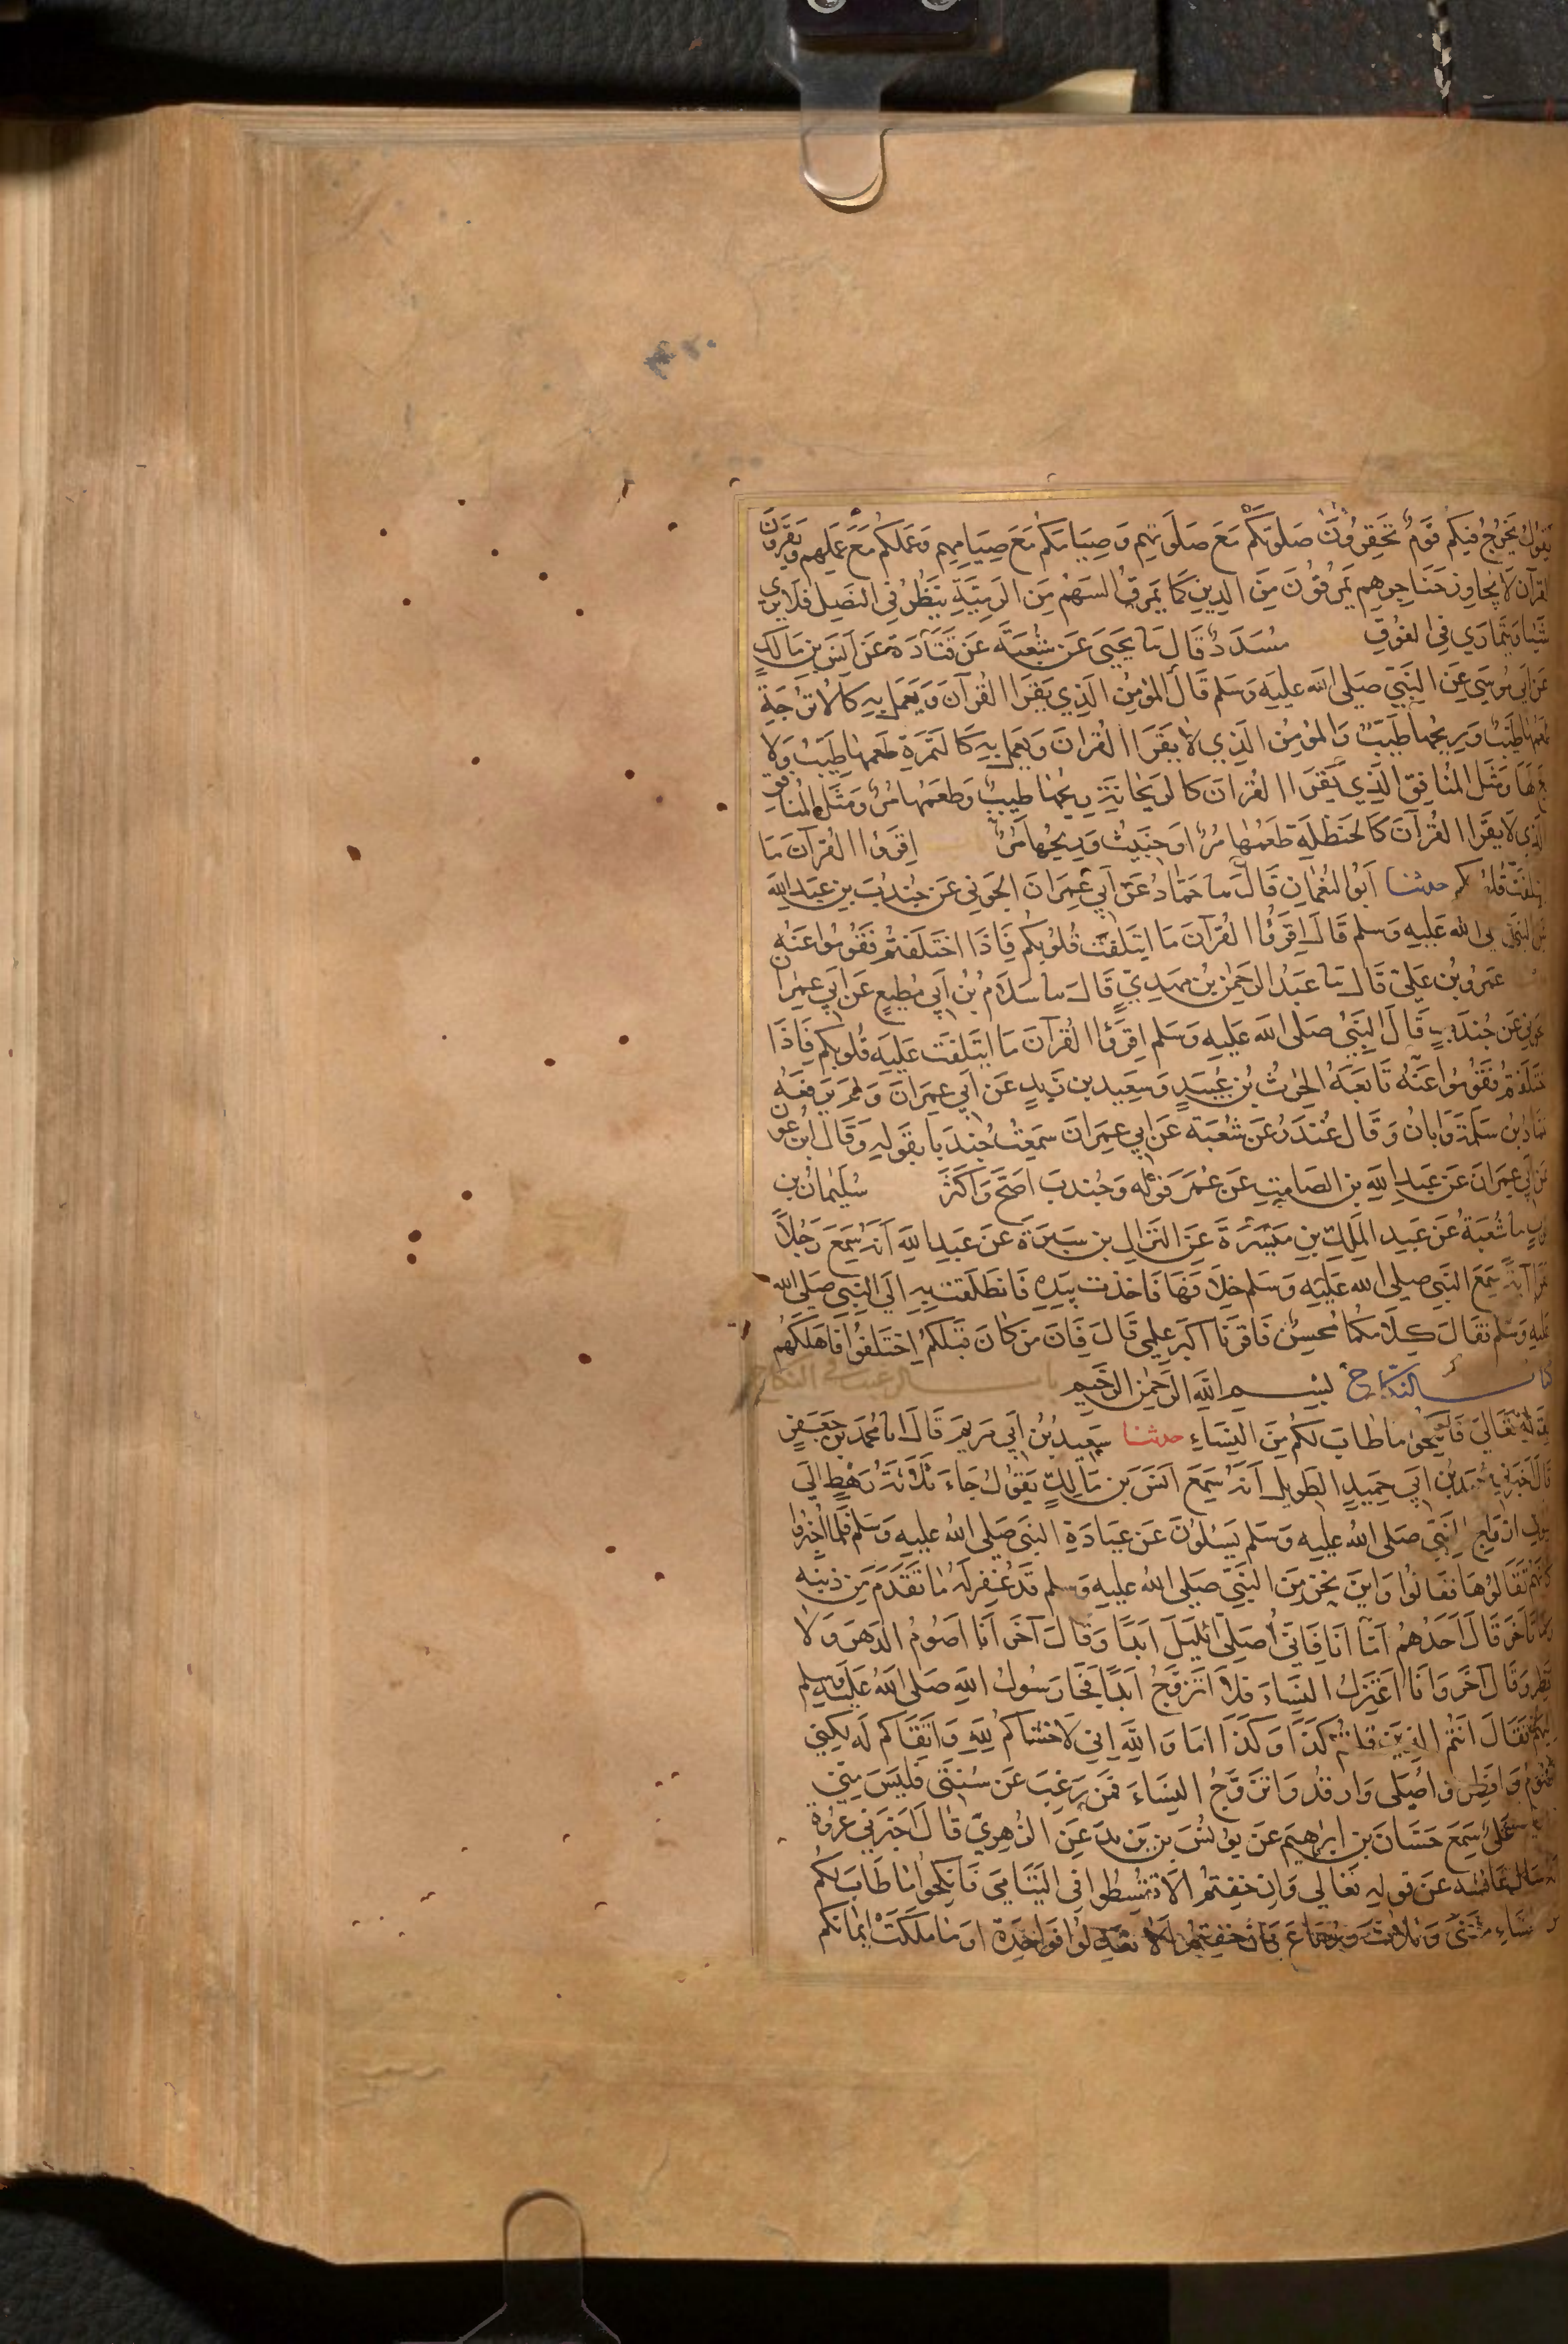 يقول يخرج فيكم قوم تحقرون صلوتكم مع صلوتهم وصيامكم مع صيامهم وعملكم مع عملهم ويقرؤن
القرآن لا يجاوز حناجرهم يمرقون من الدين كما يمرق السهم من الرمية ينظر في النصل فلا يرى
شيا ويتمارى في الفوق مسدد قال نا يحيى عن شعبة عن قتادة عن انس بن مالك
عن ابي موسى عن النبي صلى الله عليه وسلم قال المؤمن الذي يقرا القرآن ويعمل به كالاترجة
طعمها طيب وريحها طيب والمؤمن الذي لا يقرا القران ويعمل به كالتمرة طعمها طيب ولا
ريح لها ومثل المنافق الذي يقرا القران كالريحانة ريحها طيب وطعمها مر ومثل المنافق
الذي لا يقرا القرآن كالحنظلة طعمها مر او خبيث وريحها مر اقرؤا القرآن ما
ايتلفت قلوبكم حدثنا ابو النعمان قال نا حماد عن ابي عمران الجوني عن جندب بن عبد الله
عن النبي صلى الله عليه وسلم قال اقرؤا القرآن ما ايتلفت قلوبكم فاذا اختلفتم فقوموا عنه
عمرو بن علي قال نا عبد الرحمن بن مهدي قال نا سلام بن ابي مطيع عن ابي عمران
الجوني عن جندب قال النبي صلى الله عليه وسلم اقرؤا القرآن ما ايتلفت عليه قلوبكم فاذا
اختلفتم فقوموا عنه تابعه الحرث بن عبيد وسعيد بن زيد عن ابي عمران ولم يرفعه
حماد بن سلمة وابان وقال غندر عن شعبة عن ابي عمران سمعت جندبا بقوله وقال ابن عون
عن ابي عمران عن عبد الله بن الصامت عن عمر قوله وجندب اصح واكثر سليمان بن
حرب نا شعبة عن عبد الملك بن ميسرة عن النزال بن سبرة عن عبد الله انه سمع رجلا
يقرا آية سمع النبي صلى الله عليه وسلم خلافها فاخذت بيده فانطلقت به الى النبي صلى الله
عليه وسلم فقال كلاكما محسن فاقرآ اكبر علمي قال فان من كان قبلكم اختلفوا فاهلكهم
كتاب النكاح بسم الله الرحمن الرحيم باب الترغيب في النكاح
لقوله تعالى فانكحوا ما طاب لكم من النساء حدثنا سعيد بن ابي مريم قال انا محمد بن جعفر
قال اخبرني حميد بن ابي حميد الطويل انه سمع انس بن مالك يقول جاء ثلاثة رهط الى
بيوت ازواج النبي صلى الله عليه وسلم يسئلون عن عبادة النبي صلى الله عليه وسلم فلما اخبروا
كانهم تقالوها فقالوا واين نحن من النبي صلى الله عليه وسلم قد غفر له ما تقدم من ذنبه
وما تاخر قال احدهم اما انا فاني اصلى الليل ابدا وقال آخر انا اصوم الدهر ولا
افطر وقال آخر وانا اعتزل النساء فلا اتزوج ابدا فجا رسول الله صلى الله عليه وسلم
اليهم فقال انتم الذين قلتم كذا وكذا اما والله اني لاخشاكم لله واتقاكم له لكني
اصوم وافطر واصلى وارقد واتزوج النساء فمن رغب عن سنتي فليس مني
علي سمع حسان بن ابراهيم عن يونس بن يزيد عن الزهري قال اخبرني عروة
انه سال عائشة عن قوله تعالى وان خفتم الا تقسطوا في اليتامى فانكحوا ما طاب لكم
من النساء مثنى وثلاث ورباع فان خفتم الا تعدلوا فواحدة او ما ملكت ايمانكم